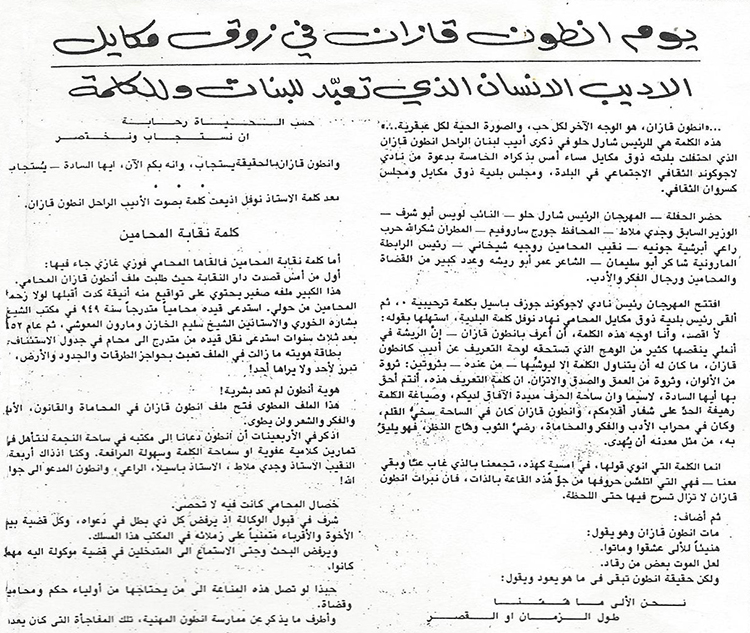 يوم انطون قازان في زوق مكايل
الاديب الانسان الذي تعبّد للبنات وللكلمة
...«انطون قازان، هو الوجه الآخر لكل حب، والصورة الحية لكل عبقرية...»
هذه الكلمة هي للرئيس شارل حلو في ذكرى أديب لبنان الراحل انطون قازان
الذي احتفلت بلدته ذوق مكايل مساء امس بذكراه الخامسة بدعوة من نادي
لاجوكوند الثقافي الاجتماعي في البلدة، ومجلس بلدية ذوق مكايل ومجلس
كسروان الثقافي.
حضر الحفلة — المهرجان الرئيس شارل حلو — النائب لويس أبو شرف —
الوزير السابق وجدي ملاط — المحافظ جورج ساروفيم — المطران شكرالله حرب
راعي أبرشية جونيه — نقيب المحامين روجيه شيخاني — رئيس الرابطة
المارونية شاكر أبو سليمان — الشاعر عمر أبو ريشه وعدد كبير من القضاة
والمحامين ورجال الفكر والأدب.
افتتح المهرجان رئيس نادي لاجوكوند جوزف باسيل بكلمة ترحيبية ، ثم
ألقى رئيس بلدية ذوق مكايل المحامي نهاد نوفل كلمة البلدية، استهلها بقوله:
لا اقصد، وأنا اوجه هذه الكلمة، ان أعرف بأنطون قازان — إنّ الريشة في
أنملي ينقصها كثير من الوهج الذي تستحقه لوحة التعريف عن أديب كأنطون
قازان، ما كان له أن يتناول الكلمة إلا ليوشّيها — من عنده — بثروتين: ثروة
من الألوان، وثروة من العمق والصدق والاتزان. ان كلمة التعريف هذه، أنتم أحق
بها أيها السادة، لاسيما وان ساحة الحرف مديدة الآفاق لديكم، وصياغة الكلمة
رهيفة الحدّ على شفار أقلامكم، وانطون قازان كان في الساحة سخيّ القلم،
وكان في محراب الأدب والفكر والمحاماة، رضيّ الثوب وهّاج النظر، فهو يليق
به، من مثل معدنه أن يُهدى.
انما الكلمة التي انوي قولها، في امسية كهذه، تجمعنا بالذي غاب عنّا وبقي
معنا — فهي التي اتلمّس حروفها من جوّ هذه القاعة بالذات، فان نبرات انطون
قازان لا تزال تسرح فيها حتى اللحظة.
ثم أضاف:
مات انطون قازان وهو يقول:
هنيئاً للألى عشقوا وماتوا.
لعل الموت بعض من رقاد.
ولكن حقيقة انطون تبقى في ما هو يعود ويقول:
نحن الألى ما همّنا
طول الزمان او القصر
حسب الحياة رحابة
ان نستجاب ونختصر
وانطون قازان بالحقيقة يستجاب، وانه بكم الآن، ايها السادة — يُستجاب
بعد كلمة الاستاذ نوفل اذيعت كلمة بصوت الأديب الراحل انطون قازان.
كلمة نقابة المحامين
أما كلمة نقابة المحامين فالقاها المحامي فوزي غازي جاء فيها:
أول من أمس قصدت دار النقابة حيث طلبت ملف أنطون قازان المحامي.
هذا الكبير ملفه صغير يحتوي على تواقيع منه أنيقة كدت أقبلها لولا زحمة
المحامين من حولي. استدعى قيده محامياً متدرجاً سنة ٩٤٩ في مكتب الشيخ
بشاره الخوري والاستاذين الشيخ سليم الخازن ومارون المعوشي، ثم عام
بعد ثلاث سنوات استدعى نقل قيده من متدرج الى محام في جدول الاستئناف.
بطاقة هويته ما زالت في الملف تعبث بحواجز الطرقات والجدود والأرض،
تبرز لأحد ولا يراها أحد!
هوية أنطون لم تعد بشرية!
هذا الملف المطوى فتح ملف انطون قازان في المحاماة والقانون،
والفكر والشعر ولن يطوى.
اذكر في الأربعينات أن انطون دعانا الى مكتبه في ساحة النجمة لنتأهل
تمارين كلامية عفوية او سماحة الكلمة وسهولة المرافعة. وكنا اذذاك أربعة:
النقيب الاستاذ وجدي ملاط، الاستاذ باسيلا، الراعي، وانطون المدعو الى جوار
الله!
خصال المحامي كانت فيه لا تحصى.
شرف في قبول الوكالة إذ يرفض كل ذي بطل في دعواه، وكل قضية بين
الأخوة والأقرباء متمنياً على زملائه في المكتب هذا المسلك.
ويرفض البحث وحتى الاستماع الى المتدخلين في قضية موكولة اليه مهما
كانوا.
حبذا لو تصل هذه المناعة الى من يحتاجها من أولياء حكم ومحامين
وقضاة.
وأطرف ما يذكر عن ممارسة انطون المهنية، تلك المفاجأة التي كان يعدها